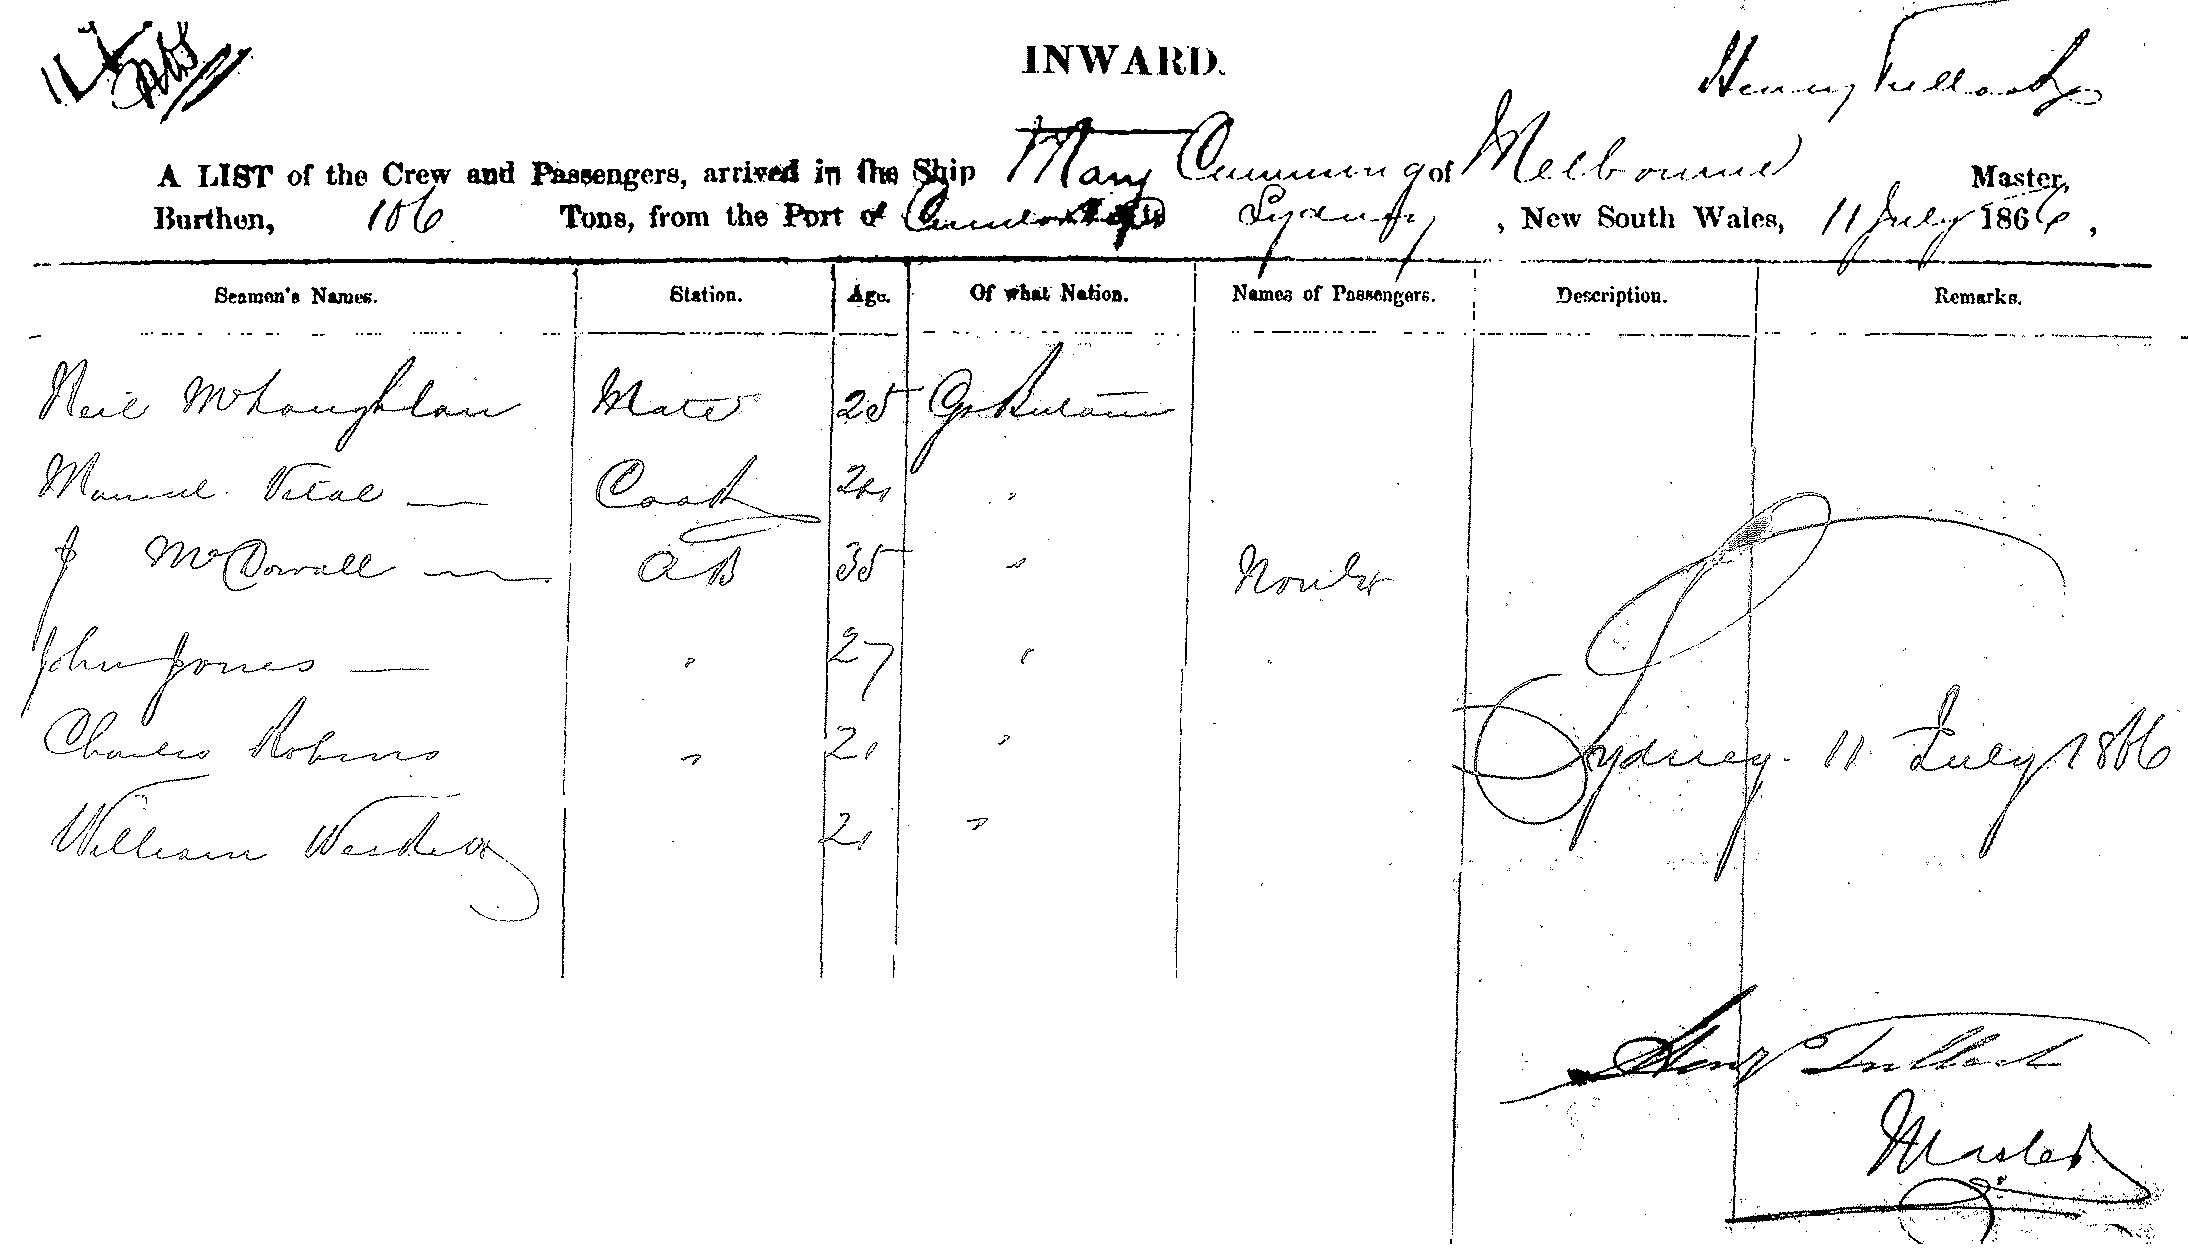 INWARD.
Henry Tulloch
A LIST of the Crew and Passengers, arrived in the Ship Mary Cumming of Melbourne Master,
Burthen, 106 Tons, from the Port of Sydney, New South Wales, 11 July 1866,
Seamen's Names. Station. Age. Of what Nation. Names of Passengers. Description. Remarks.
Neil McLaughlan Mate 25 Gt Britain
Manuel Vital — Cook "
J McDowall — AB 35 "
John Jones — " 27 "
Charles Robins " 21 "
William 21 "
Sydney 11 July 1866
Henry Tulloch
Master